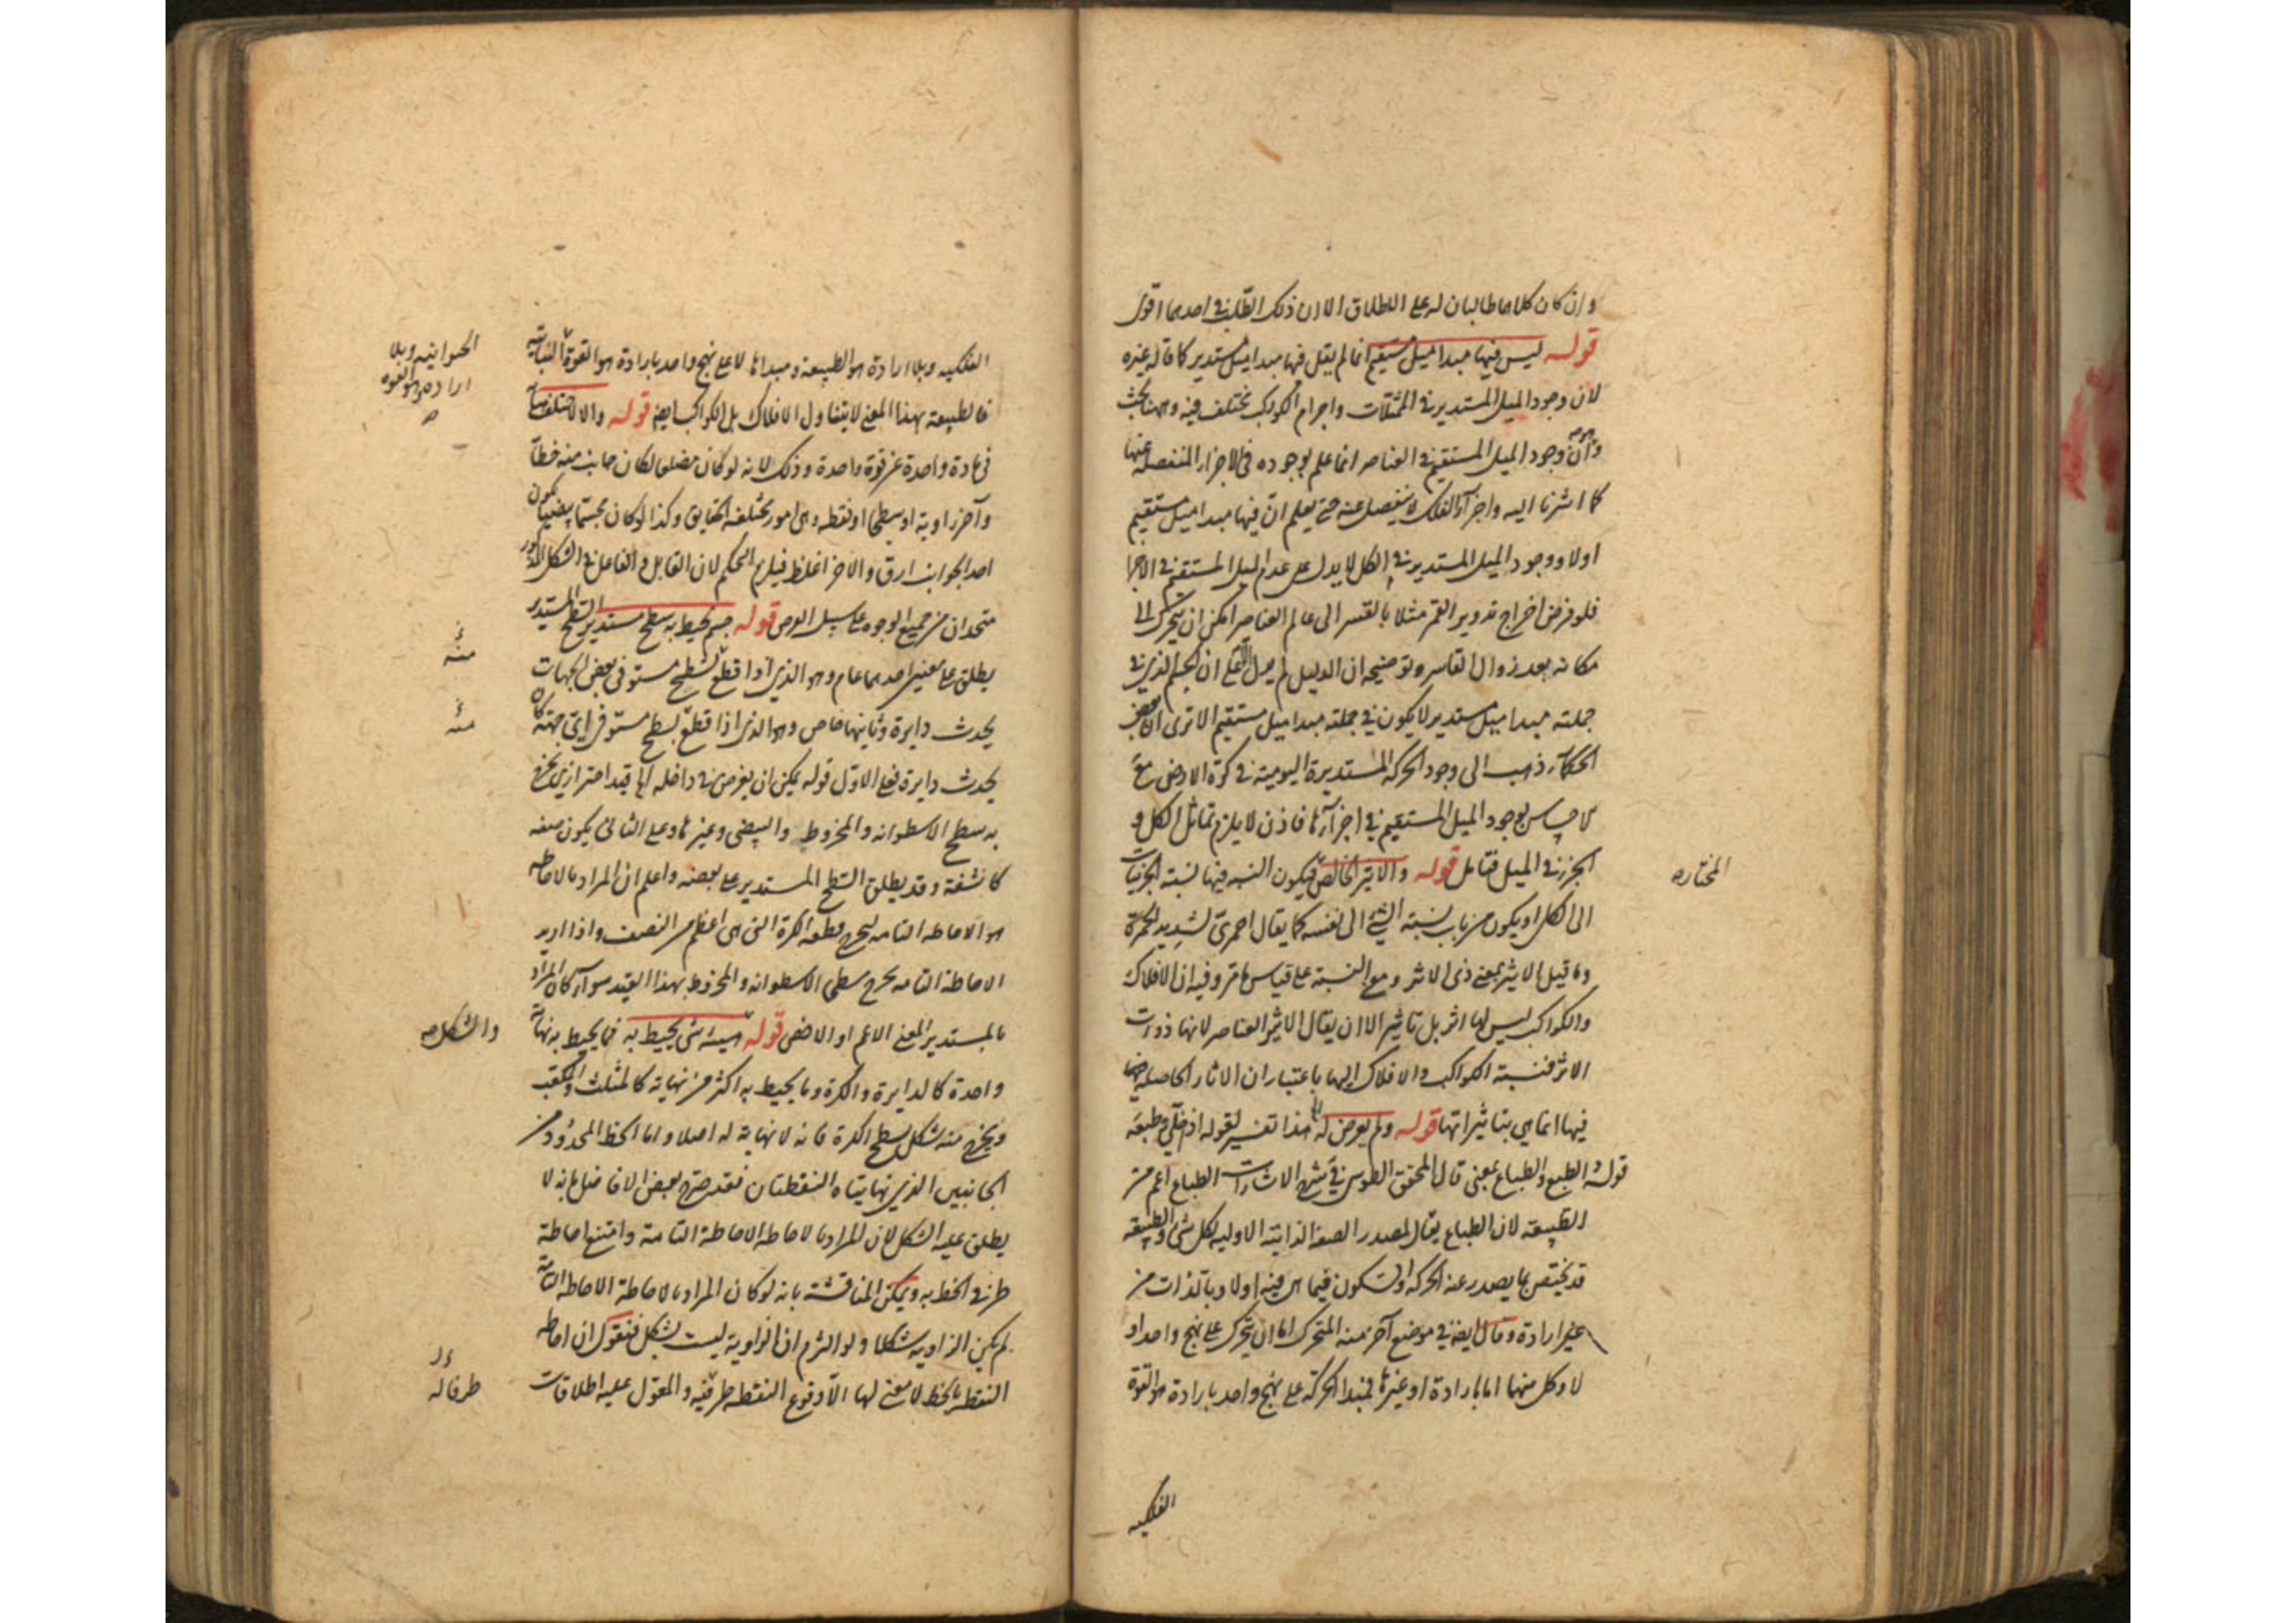 وان كان كلاهما طالبان له على الاطلاق الا ان ذلك الطلب في احدهما اقوى
قوله ليس فيها مبدا ميل مستقيم انما لم يقل فيها مبدا ميل مستدير كما قاله غيره
لان وجود الميل المستدير في الممثلات واجرام الكواكب مختلف فيه وههنا بحث
وهو ان وجود الميل المستقيم في العناصر انما علم بوجوده في الاجزاء المنفصلة عنها
كما اشرنا اليه واجزاء الفلك لا ينفصل عنه حتى يعلم ان فيها مبدا ميل مستقيم
اولا ووجود الميل المستدير في الكل لا يدل على عدم الميل المستقيم في الاجزا
فلو فرض اخراج تدوير القمر مثلا بالقسر الى عالم العناصر امكن ان يتحرك الى
مكانه بعد زوال القاسر وتوضيحه ان الدليل لم يدل على ان الجسم الذي في
جملته مبدا ميل مستدير لا يكون في جملته مبدا ميل مستقيم الا ترى ان بعض
الحكماء ذهب الى وجود الحركة المستديرة اليومية في كرة الارض مع
الاحساس بوجود الميل المستقيم في اجزائها فاذن لا يلزم تماثل الكل و
الجزء في الميل فتامل قوله والاثير الخالص فيكون النسبة فيها نسبة الجزئيات
المختاره
الى الكل او يكون من باب نسبة الشئ الى نفسه كما يقال احمري لشديد الحمرة
وما قيل الاثير بمعنى ذي الاثر ومع النسبة على قياس ما مر وفيه ان الافلاك
والكواكب ليس لها اثر بل تاثير الا ان يقال الاثير العناصر لانها ذوات
الاثر فنسبة الكواكب والافلاك اليها باعتبار ان الاثار الحاصلة
فيها انما هي بتاثيراتها قوله ولم يعرض له هذا تفسير لقوله اذ خلي وطبعه
قوله الطبع والطباع بمعنى قال المحقق الطوسي في شرح الاشارات الطباع اعم من
الطبيعة لان الطباع يقال لمصدر الصفة الذاتية الاولية لكل شئ والطبيعة
قد يختص بما يصدر عنه الحركة والسكون فيما هي فيه اولا وبالذات من
غير ارادة وقال ايضا في موضع آخر منه المتحرك اما ان يتحرك على نهج واحد او
لا وكل منهما اما بارادة او غيرها فمبدا الحركة على نهج واحد بارادة هو القوة
الفلكيه
الفلكيه وبلا ارادة هو الطبيعة ومبداها لا على نهج واحد بارادة هو القوة النباتية
الحيوانيه وبلا
اراده هو القوه
فالطبيعة بهذا المعنى لا يتناول الافلاك بل الكواكب ايضا قوله والا لاختلف
في مادة واحدة عن قوة واحدة وذلك لانه لو كان مضلعا لكان جانب منه خطا
وآخر زاوية او سطحا او نقطة وهي امور مختلفة الحقايق وكذا لو كان مجسما بيضيا يكون
احد الجوانب ارق والاخر اغلظ فيلزم التحكم لان القابل والفاعل في الشكل المذكور
متحدان من جميع الوجوه على سبيل الفرض قوله جسم يحيط به سطح مستدير السطح المستدير
يطلق على معنيين احدهما عام وهو الذي اذا قطع بسطح مستو في بعض الجهات
منه
يحدث دايرة وثانيهما خاص وهو الذي اذا قطع بسطح مستو في اي جهة كان
منه
يحدث دايرة فعلى الاول قوله يمكن ان يفرض في داخله اه قيد احترازي يخرج
به سطح الاسطوانه والمخروط والبيضي وغيرها وعلى الثاني يكون صفه
كاشفة وقد يطلق السطح المستدير على بعضه واعلم ان المراد بالاحاطه
هو الاحاطه التامه ليخرج قطعه الكرة التي هي اعظم من النصف واذا اريد
الاحاطة التامه يخرج سطحي الاسطوانه والمخروط بهذا القيد سواء كان المراد
بالمستدير المعنى الاعم او الاخص قوله هيئة شئ يحيط به فما يحيط به نهاية
والشكل
واحدة كالدايرة والكرة وما يحيط به اكثر من نهاية كالمثلث والمكعب
ويخرج منه شكل سطح الكرة فانه لا نهاية له اصلا واما الخط المحدود من
الجانبين الذي نهايتاه النقطتان فقد صرح بعض الافاضل بانه لا
يطلق عليه الشكل لان المراد بالاحاطه الاحاطة التامة وامتنع احاطة
طرفي الخط به ويمكن المناقشة بانه لو كان المراد بالاحاطة الاحاطة التامة
لم يكن الزاويه شكلا ولو التزم ان الزاوية ليست بشكل فنقول ان احاطه
النقطة بالخط لا معنى لها الا وقوع النقطه طرفيه والمعول عليه اطلاقات
طرفا له